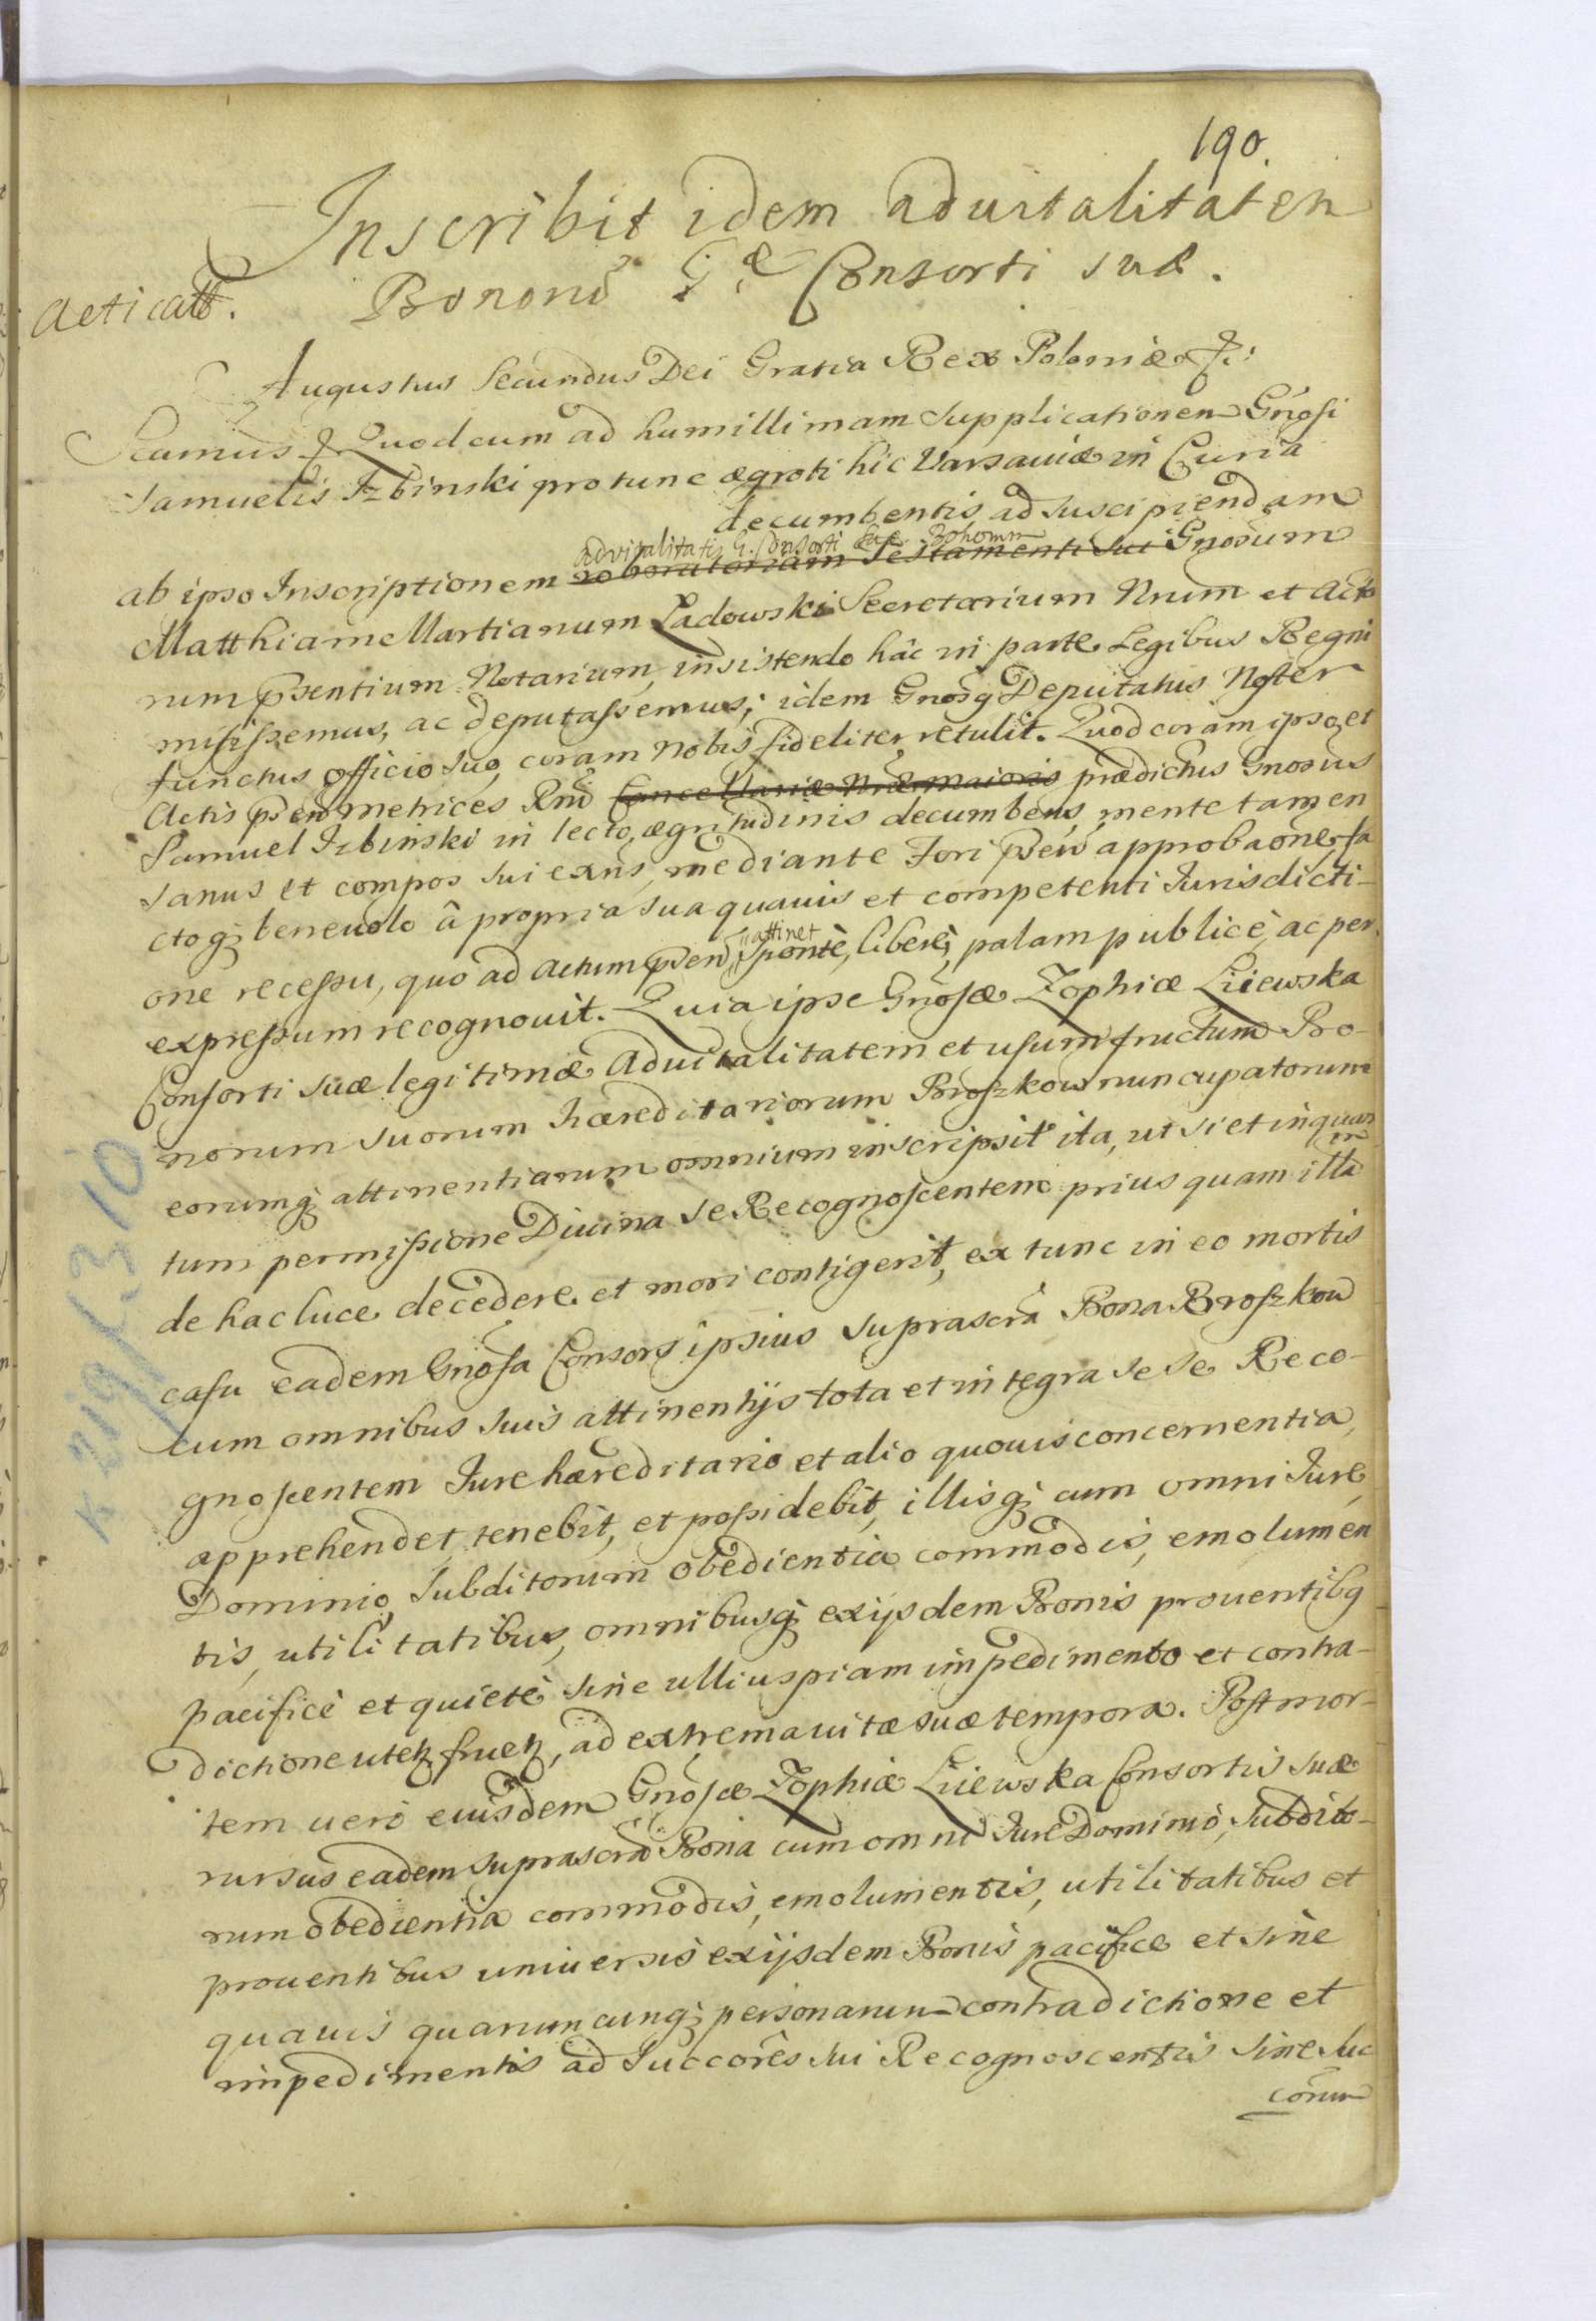 190.
Inscribit idem advitalitatem
Acticatt. Bonorū G. Consorti suæ.
Augustus Secundus Dei Gratia Rex Poloniæ &:
Scimus & Quod cum ad humillimam supplicationem Gnosi
Samuelis Izbinski pro tunc ægroti hic Varsaviæ in Curia
decumbentis ad suscipiendam
advitalitatis G. Consorti suæ
ab ipso Inscriptionem roboratoriam Testamenti sui Gnosum
Matthiam Martianum Ładowski Secretarium Nrum et Acto
rum p̄sentium Notarium, insistendo hâc in parte Legibus Regni
misissemus, ac deputassemus; idem Gnosq Deputatus Noster
functus officio suo, coram nobis fideliter retulit. Quod coram ipso, et
Actis p̄sen metrices Rni Cancellariæ Nræ Maioris prædictus Gnosus
Samuel Izbinski in lecto ægritudinis decumbens, mente tamen
sanus et compos sui exns, mediante Fori p̄sen approbaōne, fa
ctoq; benevolo â propria sua quavis et competenti Jurisdicti-
attinet
one recessu, quo ad actum p̄sen, spontè, liberè, palam publicè, ac per
expressum recognovit. Quia ipse Gnosæ Zophiæ Liiewska
Consorti suæ legitimæ Advitalitatem et usumfructum Bo-
norum suorum hæreditariorum Broszkow nuncupatorum
eorumq; attinentiarum omnium inscripsit ita, ut si et inquan
tum permissione Divina se Recognoscentem prius quam illā
de hac luce decedere et mori contigerit, ex tunc in eo mortis
casu eadem Gnosa Consors ipsius suprascrā Bona Broszkow
cum omnibus suis attinentijs tota et integra se se Reco-
gnoscentem Jure hæreditario et alio quovis concernentia,
apprehendet, tenebit, et possidebit, illisq; cum omni Jure,
Dominio, Subditorum obedientia commodis, emolumen
tis, utilitatibus, omnibusq; ex ijsdem Bonis proventibq
pacificè et quietè sine ulliuspiam impedimento et contra-
dictione utetz fruetz, ad extrema vitæ suæ tempora. Post mor-
tem verò eiusdem Gnosæ Zophiæ Liiewska Consortis suæ
rursus eadem suprascrā Bona cum omni Jure Dominiò, Subdito-
rum obedientia commodis, emolumentis, utilitatibus et
proventibus universis ex ijsdem Bonis pacificè et sine
quavis quarumcunq; personarum contradictione et
impedimentis ad Succorēs sui Recognoscentis sine suc
corum